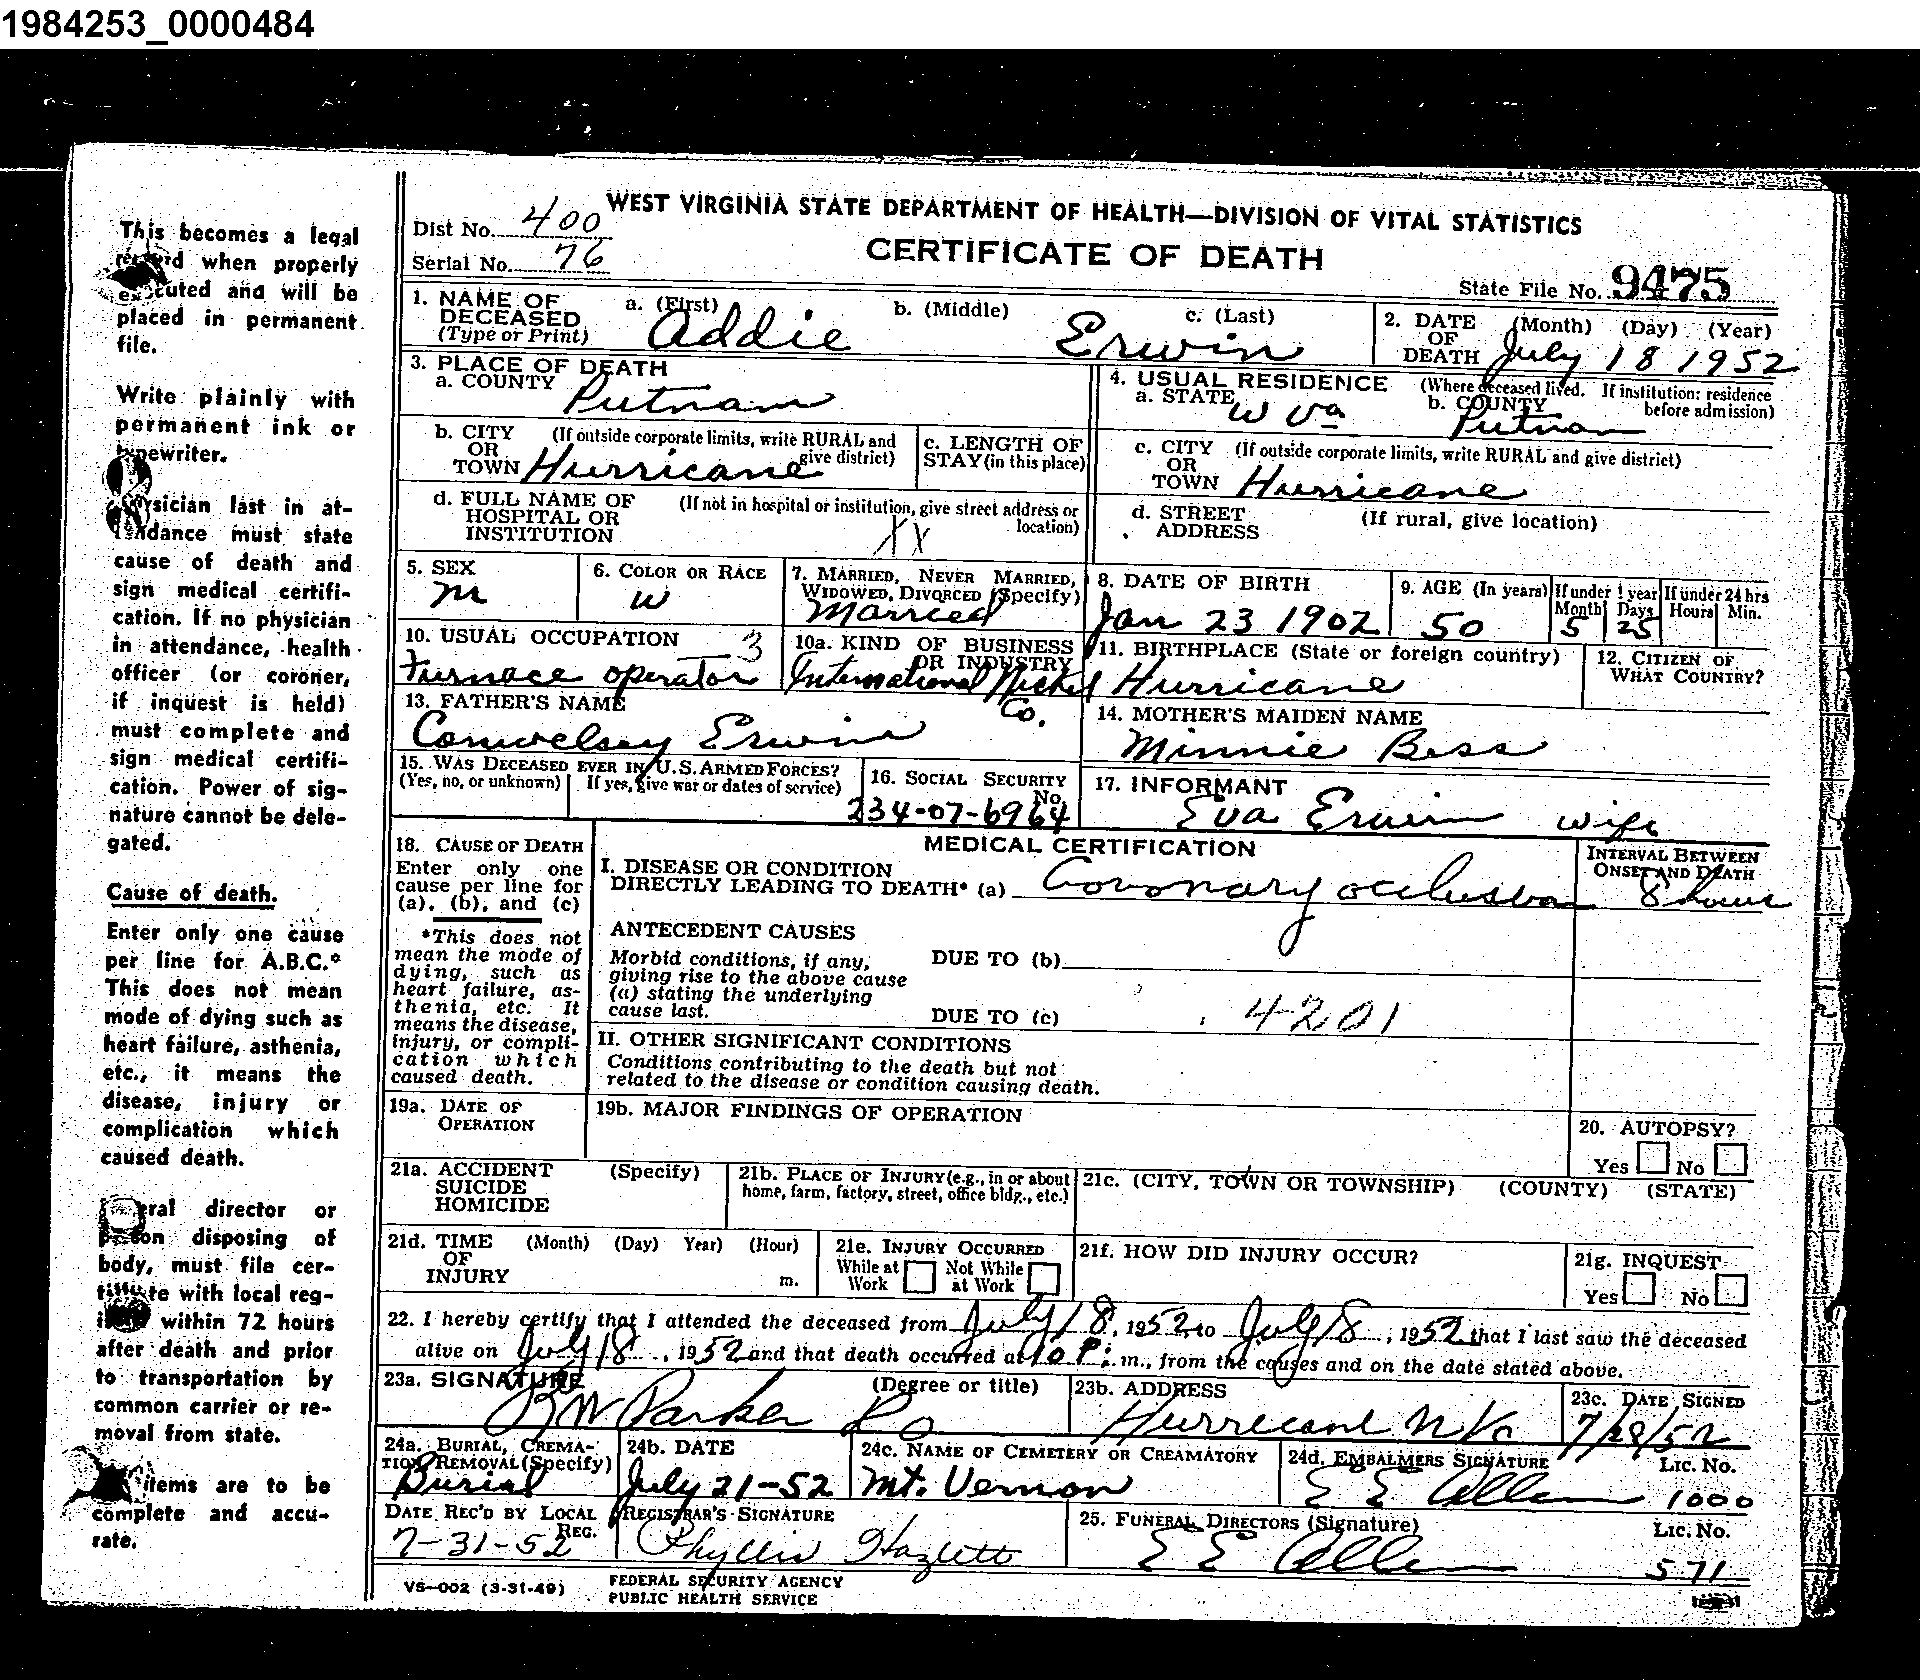 1984253_0000484
This becomes a legal
record when properly
executed and will be
placed in permanent
file.
Write plainly with
permanent ink or
typewriter.
Physician last in at-
tendance must state
cause of death and
sign medical certifi-
cation. If no physician
in attendance, health
officer (or coroner,
if inquest is held)
must complete and
sign medical certifi-
cation. Power of sig-
nature cannot be dele-
gated.
Cause of death.
Enter only one cause
per line for A.B.C.*
This does not mean
mode of dying such as
heart failure, asthenia,
etc., it means the
disease, injury or
complication which
caused death.
Funeral director or
person disposing of
body, must file cer-
tificate with local reg-
within 72 hours
after death and prior
to transportation by
common carrier or re-
moval from state.
items are to be
complete and accu-
rate.
WEST VIRGINIA STATE DEPARTMENT OF HEALTH—DIVISION OF VITAL STATISTICS
CERTIFICATE OF DEATH
Dist No. 400
Serial No. 76
State File No. 9475
1. NAME OF DECEASED (Type or Print) a. (First) Addie b. (Middle) c. (Last) Erwin
2. DATE OF DEATH (Month) (Day) (Year) July 18 1952
3. PLACE OF DEATH
a. COUNTY Putnam
4. USUAL RESIDENCE (Where deceased lived. If institution: residence before admission)
a. STATE W Va b. COUNTY Putnam
b. CITY OR TOWN (If outside corporate limits, write RURAL and give district) Hurricane
c. LENGTH OF STAY (in this place)
c. CITY OR TOWN (If outside corporate limits, write RURAL and give district) Hurricane
d. FULL NAME OF HOSPITAL OR INSTITUTION (If not in hospital or institution, give street address or location) XX
d. STREET ADDRESS (If rural, give location)
5. SEX M
6. COLOR OR RACE W
7. MARRIED, NEVER MARRIED, WIDOWED, DIVORCED (Specify) Married
8. DATE OF BIRTH Jan 23 1902
9. AGE (In years) 50 If under 1 year Month 5 Days 25 If under 24 hrs Hours Min.
10. USUAL OCCUPATION 3 Furnace operator
10a. KIND OF BUSINESS OR INDUSTRY International Nickel Co.
11. BIRTHPLACE (State or foreign country) Hurricane
12. CITIZEN OF WHAT COUNTRY?
13. FATHER'S NAME Conwelsey Erwin
14. MOTHER'S MAIDEN NAME Minnie Bess
15. WAS DECEASED EVER IN U.S. ARMED FORCES? (Yes, no, or unknown) If yes, give war or dates of service)
16. SOCIAL SECURITY No. 234-07-6964
17. INFORMANT Eva Erwin wife
18. CAUSE OF DEATH
Enter only one cause per line for (a), (b), and (c)
*This does not mean the mode of dying, such as heart failure, asthenia, etc. It means the disease, injury, or complication which caused death.
MEDICAL CERTIFICATION
INTERVAL BETWEEN ONSET AND DEATH
I. DISEASE OR CONDITION DIRECTLY LEADING TO DEATH* (a) Coronary occlusion 8 hours
ANTECEDENT CAUSES
Morbid conditions, if any, giving rise to the above cause (a) stating the underlying cause last.
DUE TO (b)
DUE TO (c) 4201
II. OTHER SIGNIFICANT CONDITIONS
Conditions contributing to the death but not related to the disease or condition causing death.
19a. DATE OF OPERATION
19b. MAJOR FINDINGS OF OPERATION
20. AUTOPSY? Yes No
21a. ACCIDENT SUICIDE HOMICIDE (Specify)
21b. PLACE OF INJURY (e.g., in or about home, farm, factory, street, office bldg., etc.)
21c. (CITY, TOWN OR TOWNSHIP) (COUNTY) (STATE)
21d. TIME OF INJURY (Month) (Day) Year) (Hour) m.
21e. INJURY OCCURRED While at Work Not While at Work
21f. HOW DID INJURY OCCUR?
21g. INQUEST Yes No
22. I hereby certify that I attended the deceased from July 18, 1952 to July 18, 1952 that I last saw the deceased
alive on July 18, 1952 and that death occurred at 10 P. m., from the causes and on the date stated above.
23a. SIGNATURE (Degree or title) RW Parker DO
23b. ADDRESS Hurricane W Va
23c. DATE SIGNED 7/29/52
24a. BURIAL, CREMATION, REMOVAL (Specify) Burial
24b. DATE July 21-52
24c. NAME OF CEMETERY OR CREAMATORY Mt. Vernon
24d. EMBALMERS SIGNATURE E E Allen Lic. No. 1000
DATE REC'D BY LOCAL REG. 7-31-52
REGISTRAR'S SIGNATURE Phyllis Hazlett
25. FUNERAL DIRECTORS (Signature) E E Allen Lic. No. 571
VS-002 (3-31-49)
FEDERAL SECURITY AGENCY
PUBLIC HEALTH SERVICE